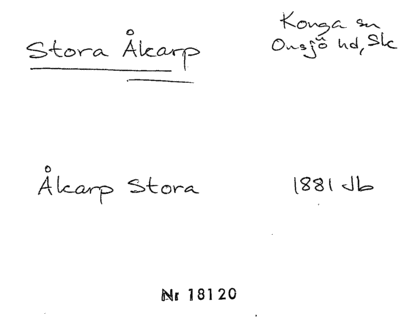 Stora Åkarp
Konga sn
Onsjö hd, Sk
Åkarp Stora
1881 Jb
Nr 18120